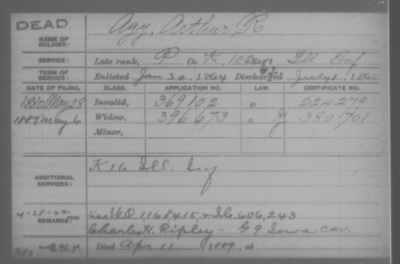 DEAD
NAME OF SOLDIER: Agy, Arthur R
SERVICE: Late rank, P Co. K, 102 Reg't Ill Inf
TERM OF SERVICE: Enlisted Jan 30, 1864 Discharged July 1, 1865
DATE OF FILING. CLASS. APPLICATION NO. LAW. CERTIFICATE NO.
1880 May 28 Invalid, 369102 " 224279
1889 May 6 Widow, 396673 " 380701
Minor,
ADDITIONAL SERVICES: K 16 Ill. Inf
REMARKS: W.O. 1168415 606,243
Charles H. Ripley - G 9 Iowa Cav.
Died Apr 11 1889, at